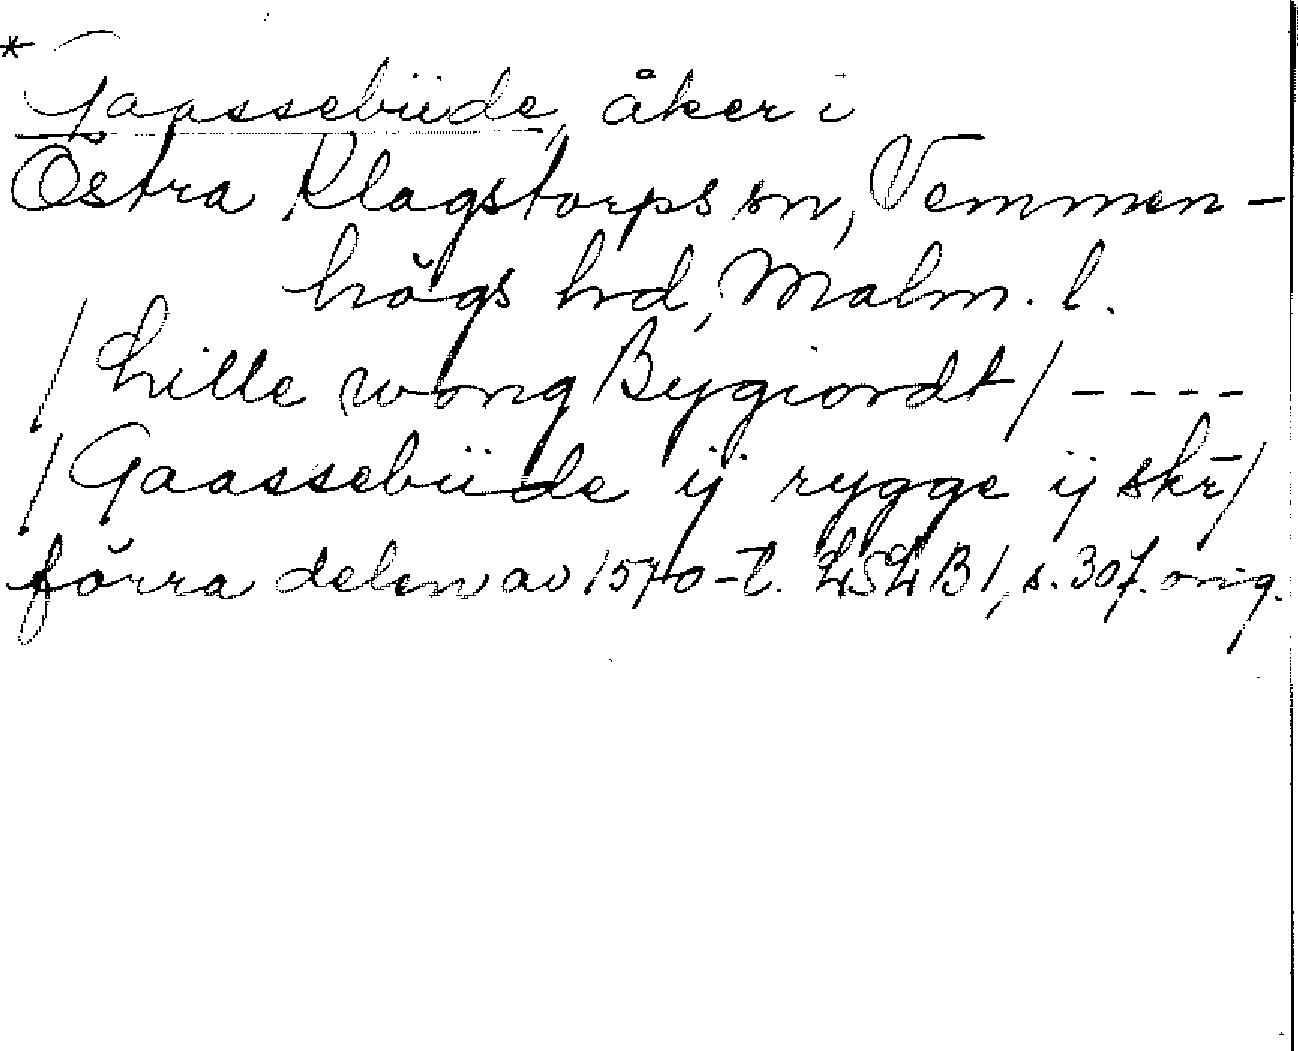 * Gaassebüde, åker i
Östra Klagstorps sn, Vemmen-
högs hd, Malm. l.
/Lille wong Bygiordt/ ----
/Gaassebüde ij rygge ij skr/
förra delen av 1570-t. LSL B1, s. 307. orig.